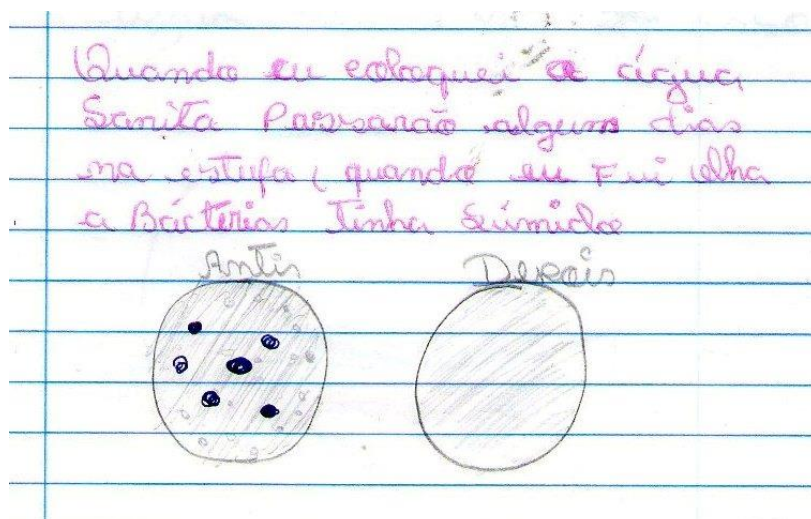 Quando eu coloquei a água
Sanita Passarão algums dias
na estufa, quando eu Fui olha
a Bácterias Tinha Súmido
Antis Depois